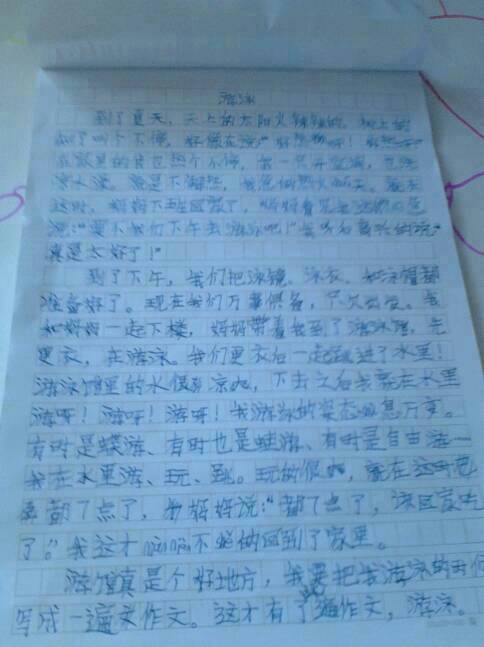 游泳
到了夏天，天上的太阳火辣辣的，树上的
知了叫个不停，好像在说："好热啊！好热啊！"
在家里的我也热个不停，我一会开空调，
凉水澡。就是不解热，我急
这时，妈妈下班回家了，妈妈看见
说："要不我们下午去游泳吧！"我听了高兴的说"
真是太好了！"
到了下午，我们把泳镜、泳衣、和泳帽都
准备好了。现在我们万事俱备，只欠出发。我
和妈妈一起下楼，妈妈带着我到了游泳馆，先
更衣，在游泳。我们更衣后一起跳进了水里！
游泳馆里的水很凉，下去之后我就在水里
游呀！游呀！游呀！我游泳的姿态千变。
有时是蝶游、有时也是蛙游、有时是自由游…
我在水里游、玩、跳。玩的很，就在这时已
经都7点了，妈妈说："都7点了，该回家吃
了。"我这才不的回到了家里。
游泳馆真是个好地方，我要把我游泳的时间
写成一遍文作文。这才有了这遍作文，游泳。